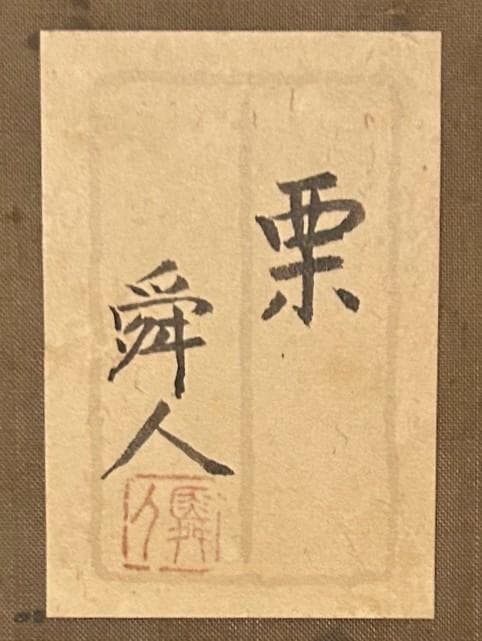 栗
舜人